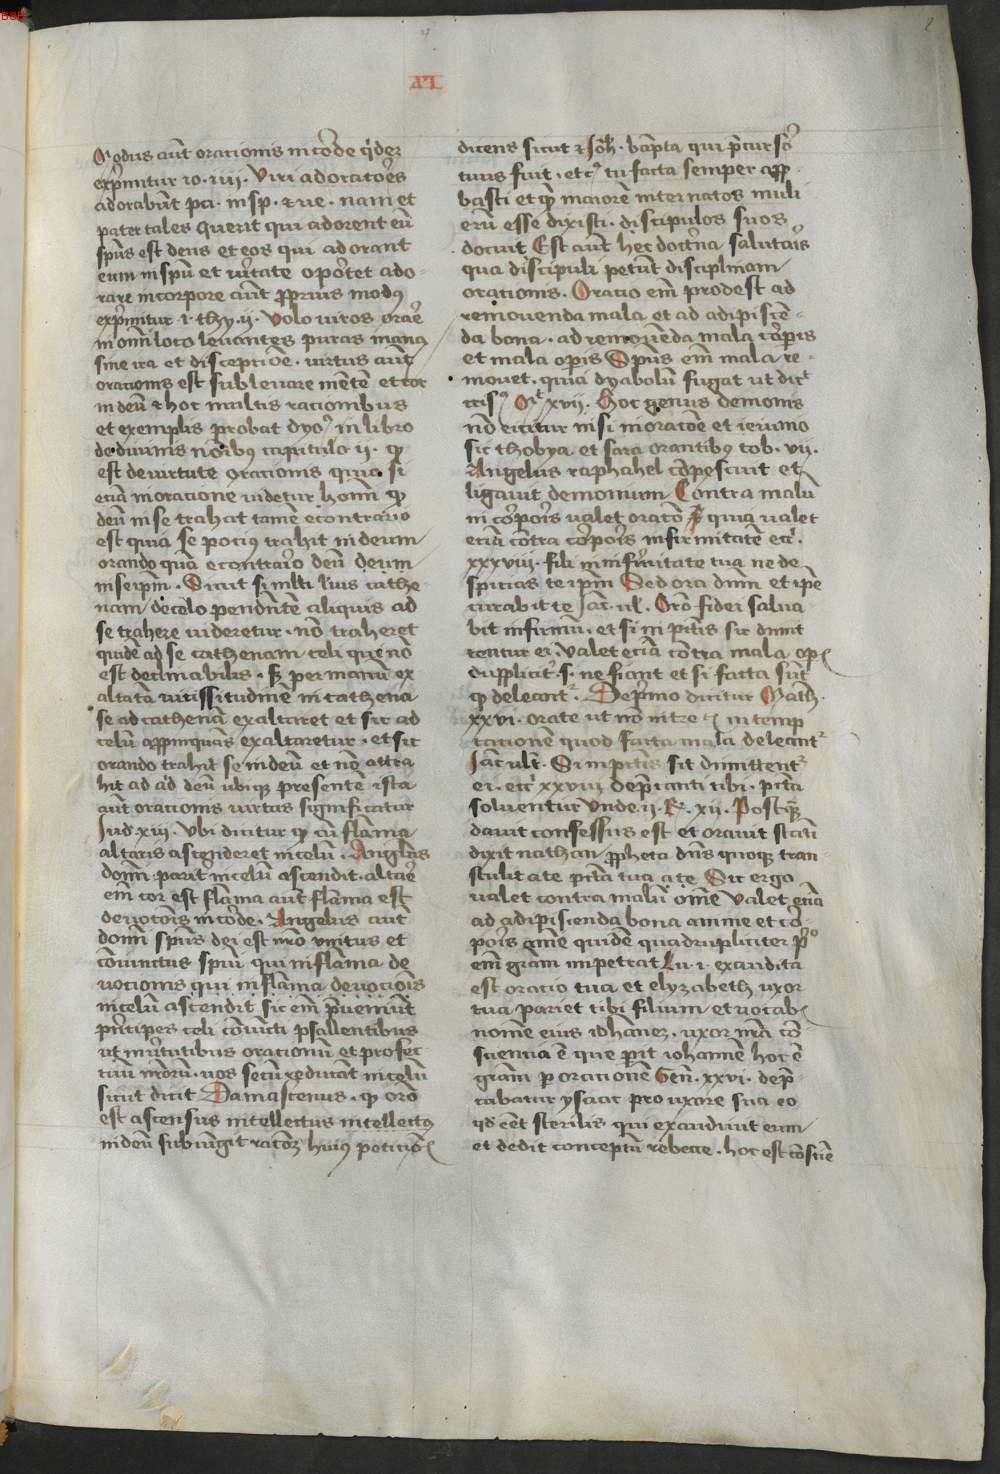 LXI
Modus aūt orationis in corde
exprimitur io. iiii. Viri adoratoēs
adorabūt pꝉi in sp. et ve. nam et
pater tales querit qui adorent eū
spūs est deus et eos qui adorant
eum in spū et vitate oportet ado
rare in corpore aūt proprius modus
exprimitur i. thy. ii. Volo viros orare
in omni loco levantes puras manus
sine ira et disceptiōe. virtus aūt
orationis est sublevare mētē et cor
in deū et hoc multis rationibus
et exemplis probat dyo in libro
de divinis nōibus capitulo ii. qꝫ
est de virtute orationis quia si
etiā in oratione videtur homī qꝫ
deū in se trahat tamē econtrario
est quia se potius trahit in deum
orando quā econtrario deū Deum
in se ipm. Sicut si multi luis cathe
nam de celo pendentē aliquis ad
se trahere videretur. nō traheret
quidē ad se cathenam celi que nō
est declinabilis. sꝫ per manū ex
altatā vicissitudinē in cathena
se ad cathenā exaltaret et sic ad
celū appinquans exaltaretur. et sic
orando trahit se in deū et nō attra
hit ad deū ubiqꝫ presentē ista
aūt orationis virtus significatur
Iud xiii. Vbi dicitur qꝫ cū flāma
altaris ascenderet in celū. Angelus
domī parit in celū ascendit. altare
em̄ cor est flāma aūt flāma est
devotōis in corde. Angelus aūt
domī spūs dei est nro unitus et
cōiunctus spūi qui in flāma de
votionis qui in flāma devotiōis
in celū ascendit sic em̄ preueniūt
principes celi cōiuncti psallentibus
ut virtutibus orationū et profec
tuū nrorū. nos secū reducāt in celū
sicut dicit Damascenus. qꝫ orō
est ascensus intellectus intellectus
in deū subiungit ratōꝫ huius petitiō
dicens sicut et Ioh. bapta qui precursor
tuus fuit. etc tu facta semper app
basti et quē maiorē inter natos muli
erū esse dixisti. discipulos suos
docuit Est aūt hec doctrina salutaris
qua discipuli petūt disciplinam
orationis. Oratio em̄ prodest ad
removenda mala et ad adipiscē
da bona. ad removēda mala corpis
et mala opis Spūs em̄ mala re
movet. quia dyabolū fugat ut dicit
xvii. Hoc genus demonis
nō eicitur nisi in oratōe et ieiunio
sic thobya et sara orantibus tob. vii.
Angelus raphahel cōpescuit et
ligavit demonium Contra malū
in corporis valet oratō quia valet
etiā cōtra corporis infirmitatē ecci.
xxxviii. fili in infirmitate tua ne de
spicias te ipm Sed ora dnm et ipē
curabit te Iac. ul. Orō fidei salva
bit infirmū. et si in pctis sit dimit
tentur ei. Valet etiā cōtra mala op
duppliciter. s. ne fiant et si facta sūt
qꝫ deleant. De primo dicitur Math.
xxvi. orate ut nō intretis in temp
tationē quod facta mala deleant
Iac ult. Si in pctis sit dimittent
ei. ecci xxviii deprecanti tibi pctā
solventur Unde ii. R. xii. Postqꝫ
david confessus est et oravit statī
dixit nathan propheta dns quoqꝫ tran
stulit a te pctm tuū a te Sic ergo
valet contra malū omē Valet etiā
ad adipiscenda bona anime et cor
poris āime quidē quadrupliciter po
em̄ grām impetrat Lu. i. exaudita
est oratio tua et elyzabeth uxor
tua pariet tibi filium et vocab
nomē eius iohannez. uxor nra cō
scientia ē que perit iohannē hoc ē
grām p orationē Gen. xxvi. depre
cabatur ysaac pro uxore sua eo
qd eēt sterilis qui exaudivit eum
et dedit conceptū rebecce. hoc est cōscie